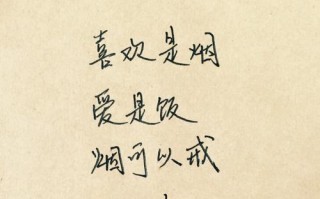 喜欢是烟
爱是饭
烟可以戒